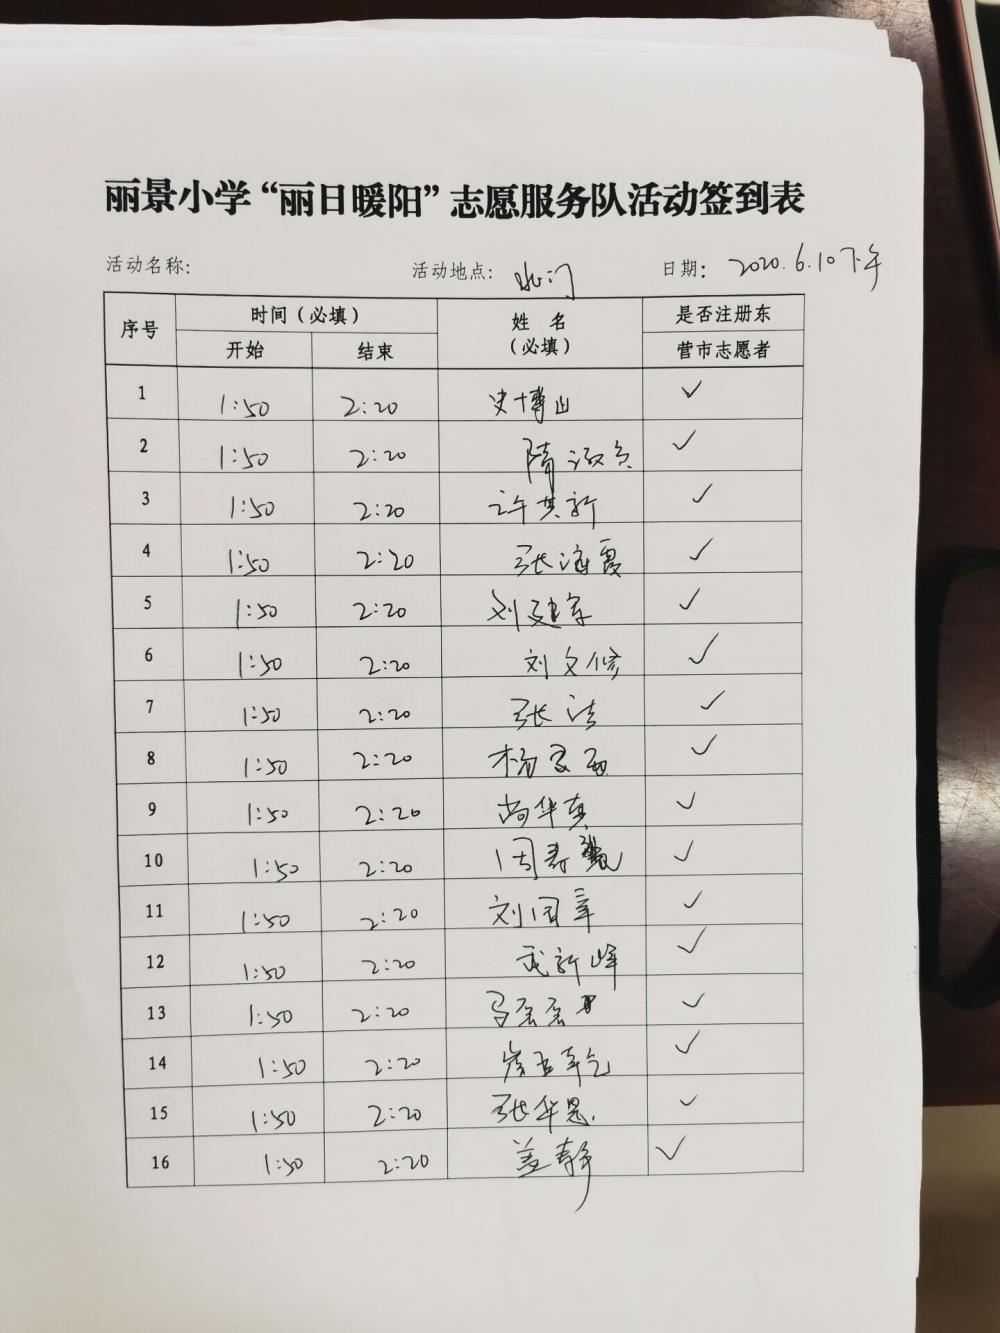 丽景小学“丽日暖阳”志愿服务队活动签到表
活动名称: 活动地点: 北门 日期: 2020.6.10下午
序号 时间（必填） 姓 名 （必填） 是否注册东
开始 结束 营市志愿者
1 1:50 2:20 史博山 ✓
2 1:50 2:20 隋 ✓
3 1:50 2:20 许其新 ✓
4 1:50 2:20 张海霞 ✓
5 1:50 2:20 刘建军 ✓
6 1:50 2:20 刘文修 ✓
7 1:50 2:20 张洁 ✓
8 1:50 2:20 杨 ✓
9 1:50 2:20 尚华真 ✓
10 1:50 2:20 周寿 ✓
11 1:50 2:20 刘国章 ✓
12 1:50 2:20 武新峰 ✓
13 1:50 2:20 ✓
14 1:50 2:20 ✓
15 1:50 2:20 张华恩 ✓
16 1:50 2:20 盖静 ✓